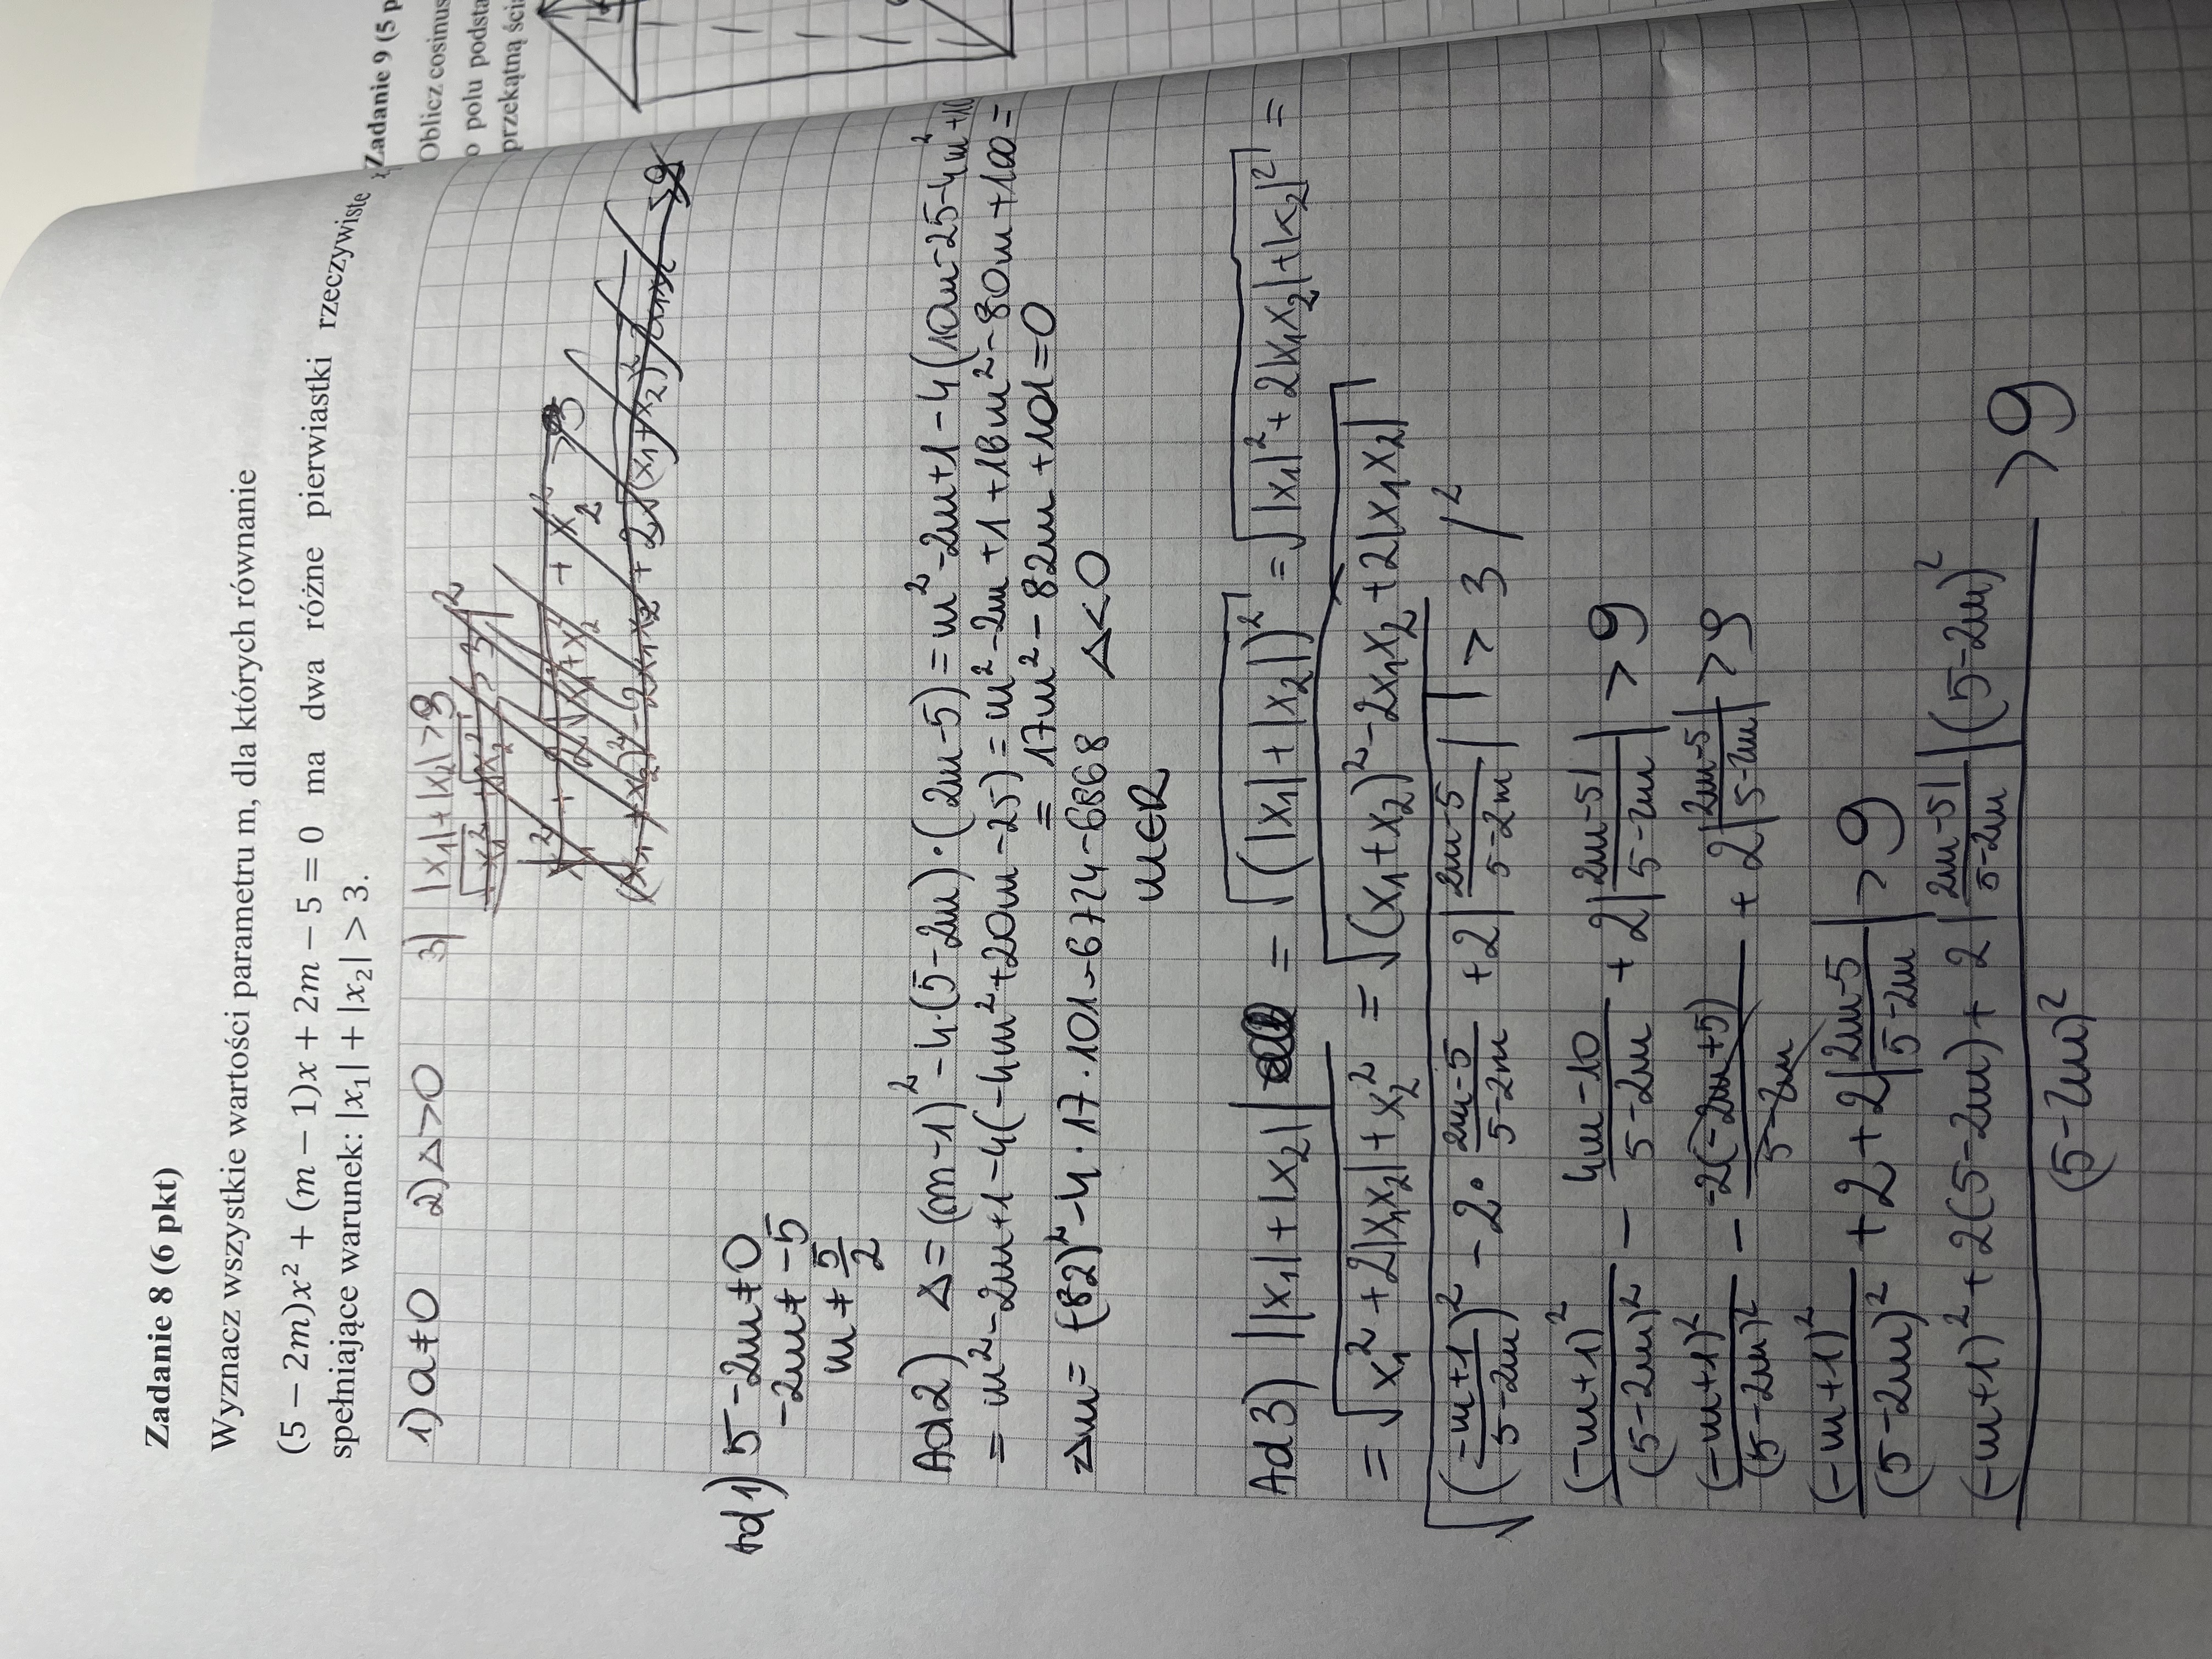 Zadanie 8 (6 pkt)
Wyznacz wszystkie wartości parametru m, dla których równanie
(5 − 2m)x² + (m − 1)x + 2m − 5 = 0 ma dwa różne pierwiastki rzeczywiste
spełniające warunek: |x₁| + |x₂| > 3.
1) a≠0 2) Δ>0 3) |x₁|+|x₂|>3
Ad1) 5-2m≠0
-2m≠-5
m≠5/2
Ad2) Δ=(m-1)²-4·(5-2m)·(2m-5)=m²-2m+1-4(10m-25-4m²+10
=m²-2m+1-4(-4m²+20m-25)=m²-2m+1+16m²-80m+100=
=17m²-82m+101=0
Δm=(82)²-4·17·101=6724-6868 Δ<0
m∈R
Ad3) ||x₁|+|x₂|| = √(|x₁|+|x₂|)² = √|x₁|²+2|x₁x₂|+|x₂|² =
=√x₁²+2|x₁x₂|+x₂² = √(x₁+x₂)²-2x₁x₂+2|x₁x₂|
√(-m+1/5-2m)²-2·2m-5/5-2m+2|2m-5/5-2m| > 3 /²
(-m+1)²/(5-2m)² - 4m-10/5-2m + 2|2m-5/5-2m| > 9
(-m+1)²/(5-2m)² - -2(-2m+5)/5-2m + 2|2m-5/5-2m| > 9
(-m+1)²/(5-2m)² + 2+2|2m-5/5-2m| > 9
(-m+1)²+2(5-2m)+2|2m-5/5-2m|(5-2m)²/(5-2m)² > 9
Zadanie 9 (5 p
Oblicz cosinus
o polu podsta
przekątną ści